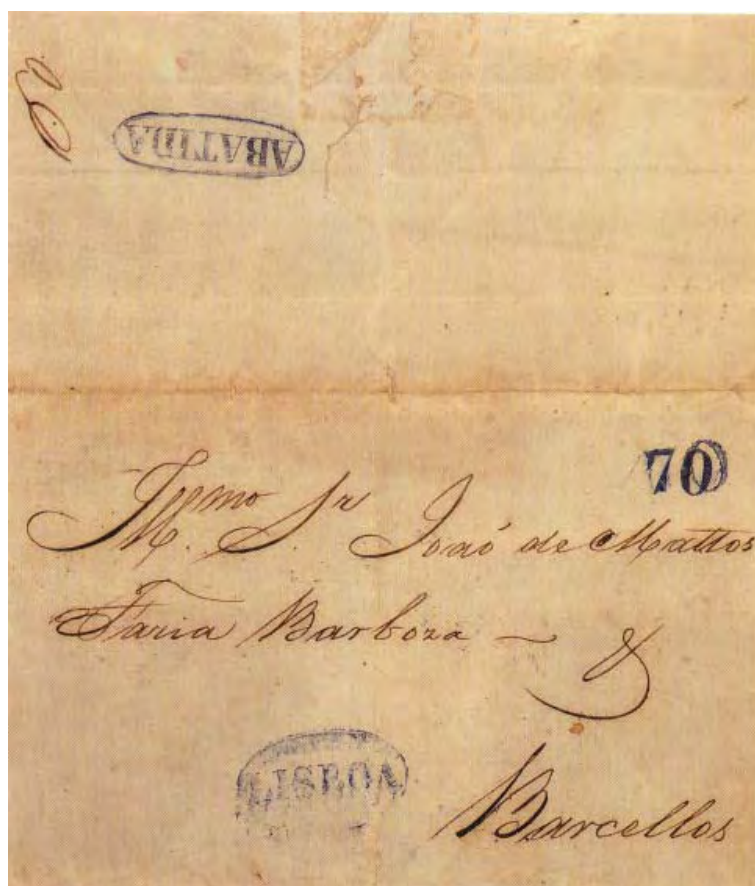 ABATIDA
70
Illmo. Sr. João de Mattos
Faria Barboza ~ &
LISBOA
Barcellos